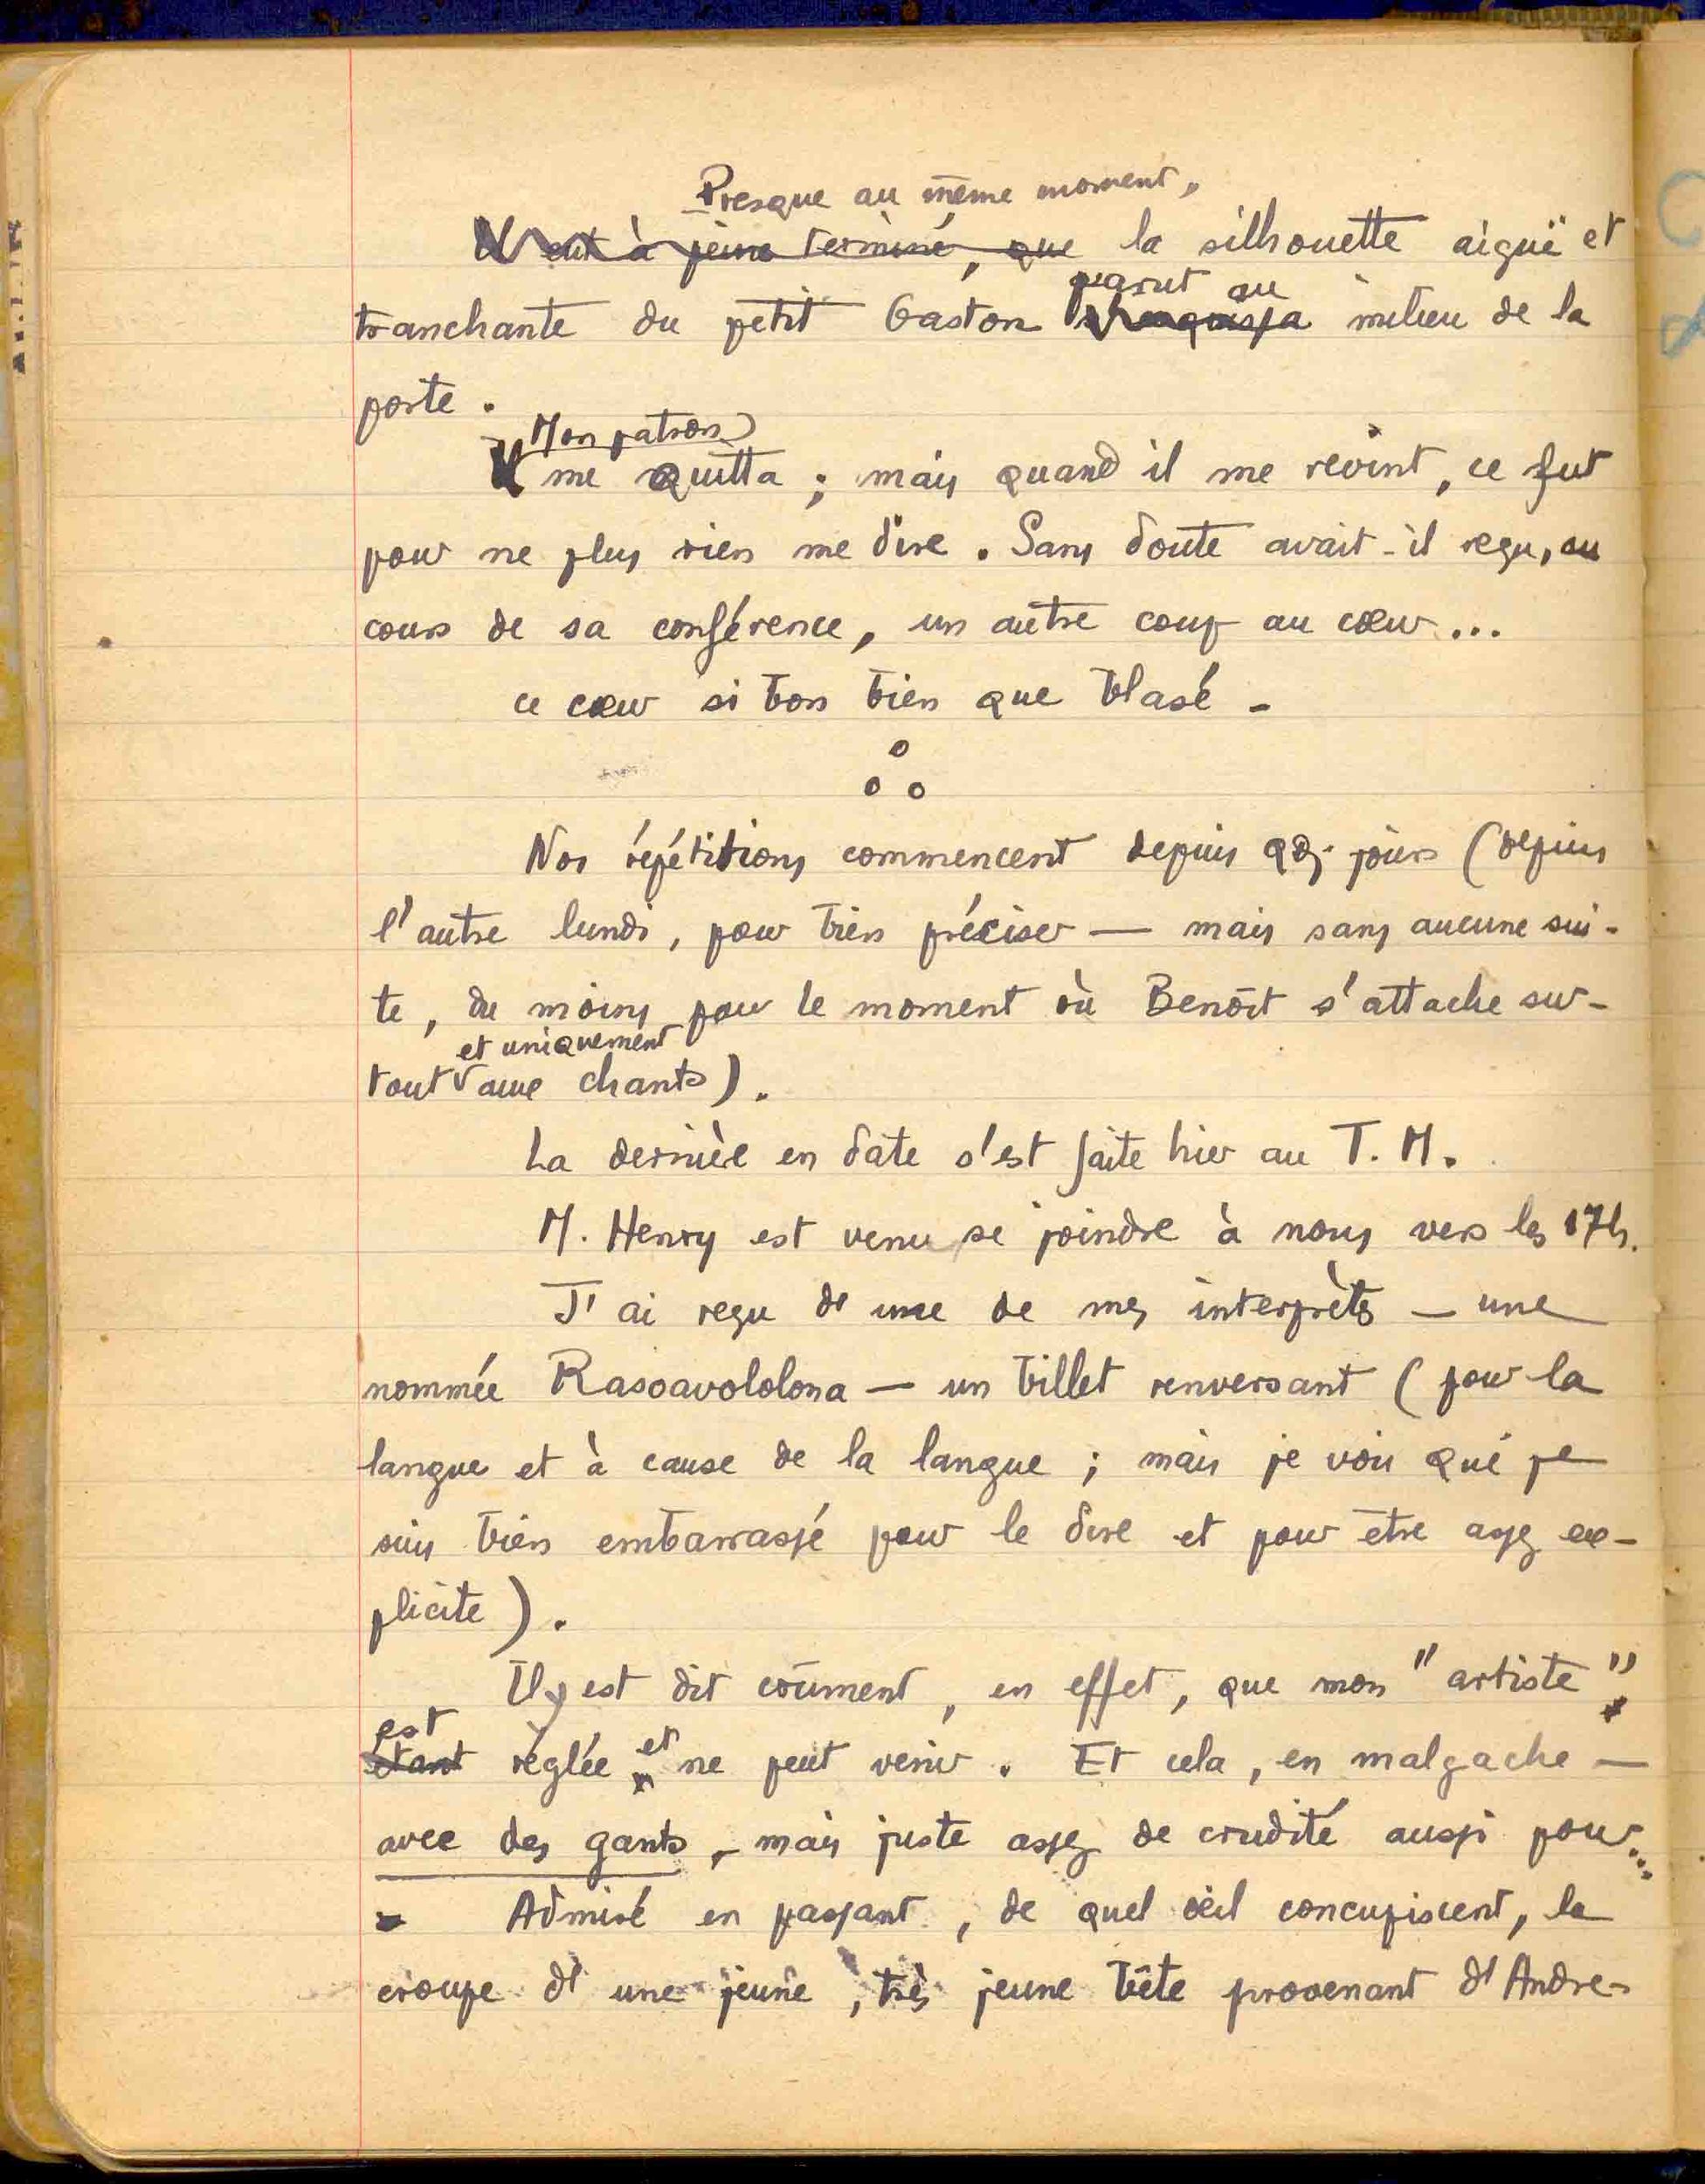 Presque au même moment,
Il eut à peine terminé, que la silhouette aiguë et
parut au
tranchante du petit Gaston milieu de la
porte.
Mon patron
Il me quitta ; mais quand il me revint, ce fut
pour ne plus rien me dire. Sans doute avait-il reçu, au
cours de sa conférence, un autre coup au cœur...
ce cœur si bon bien que blasé -
Nos répétitions commencent depuis qq. jours (depuis
l'autre lundi, pour bien préciser — mais sans aucune sui-
te, du moins pour le moment où Benoît s'attache sur-
et uniquement
tout aux chants).
La dernière en date s'est faite hier au T. M.
M. Henry est venu se joindre à nous vers les 17h.
J'ai reçu d'une de mes interprètes — une
nommée Rasoavololona — un billet renversant (pour la
langue et à cause de la langue ; mais je vois que je
suis bien embarrassé pour le dire et pour être assez ex-
plicite).
Il y est dit crûment, en effet, que mon "artiste"
est
étant réglée et ne peut venir. Et cela, en malgache —
avec des gants, - mais juste assez de crudité aussi pour...
- Admiré en passant, de quel œil concupiscent, la
croupe d'une jeune, très jeune bête provenant d'Andre-